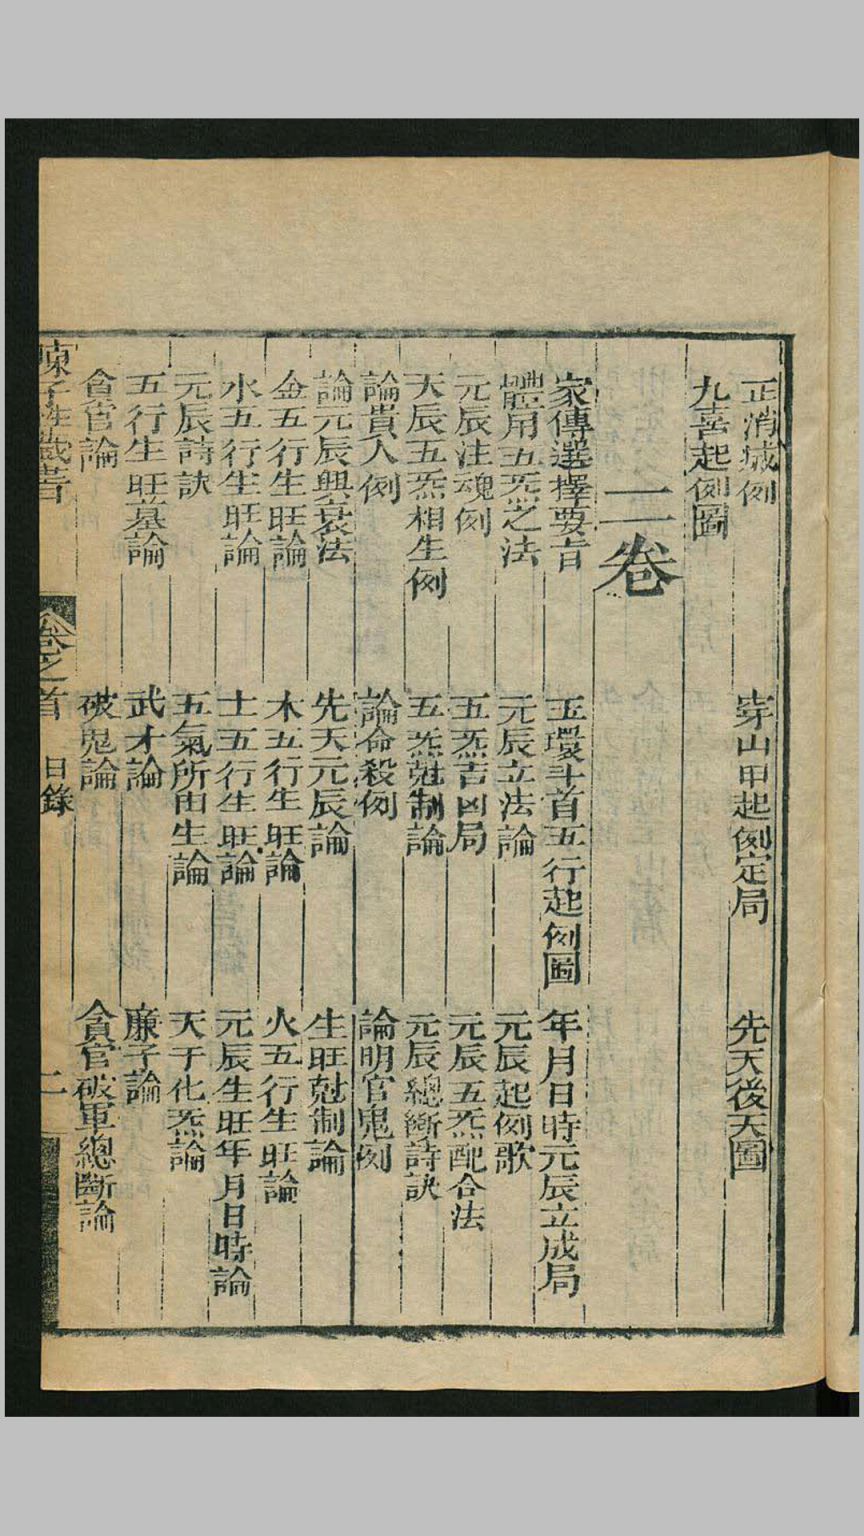 正消城例　穿山甲起例定局　先天後天圖
九喜起例圖
二卷
家傳選擇要旨　玉環斗首五行起例圖　年月日時元辰立成局
體用五炁之法　元辰立法論　元辰起例歌
元辰注魂例　五炁吉凶局　元辰五炁配合法
天辰五炁相生例　五炁尅制論　元辰總斷詩訣
論貴人例　論命殺例　論明官鬼例
論元辰興衰法　先天元辰論　生旺尅制論
金五行生旺論　木五行生旺論　火五行生旺論
水五行生旺論　土五行生旺論　元辰生旺年月日時論
元辰詩訣　五氣所由生論　天干化炁論
五行生旺墓論　武才論　廉子論
貪官論　破鬼論　貪官破軍總斷論
陳子性藏書　卷之首　目錄　二